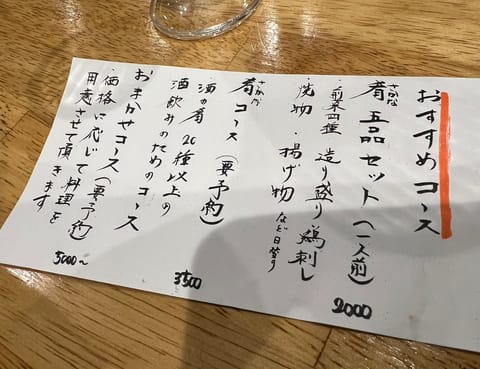 おすすめコース
さかな
肴 五品セット(一人前)
2000
・前菜四種 造り盛り 鶏刺し
・焼物 ・揚げ物 など日替り
さかな
肴コース(要予約)
3500
・酒の肴20種以上の
酒飲みのためのコース
おまかせコース(要予約)
・価格に応じて料理を
用意させて頂きます
5000〜